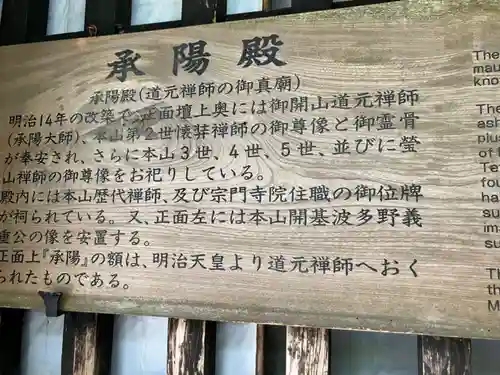 承陽殿
承陽殿(道元禅師の御真廟)
明治14年の改築で、正面壇上奥には御開山道元禅師
(承陽大師)、本山第2世懐弉禅師の御尊像と御霊骨
が奉安され、さらに本山3世、4世、5世、並びに瑩
山禅師の御尊像をお祀りしている。
殿内には本山歴代禅師、及び宗門寺院住職の御位牌
が祠られている。又、正面左には本山開基波多野義
重公の像を安置する。
正面上『承陽』の額は、明治天皇より道元禅師へおく
られたものである。
The
mau
kno
The
ash
plu
of t
Te
fou
ha
su
im
su
Th
the
M